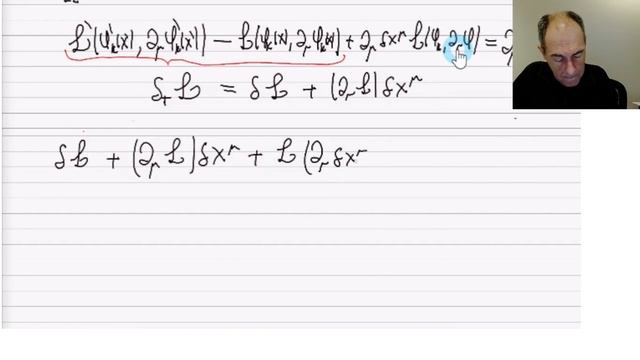 ℒ`(φ`ₖ(x`), ∂μφ`ₖ(x`)) − ℒ(φₖ(x), ∂μφₖ(x)) + ∂μδx^μ ℒ(φₖ, ∂μφ) = ∂
δ₊ℒ = δℒ + (∂μℒ)δx^μ
δℒ + (∂μℒ)δx^μ + ℒ(∂μδx^μ